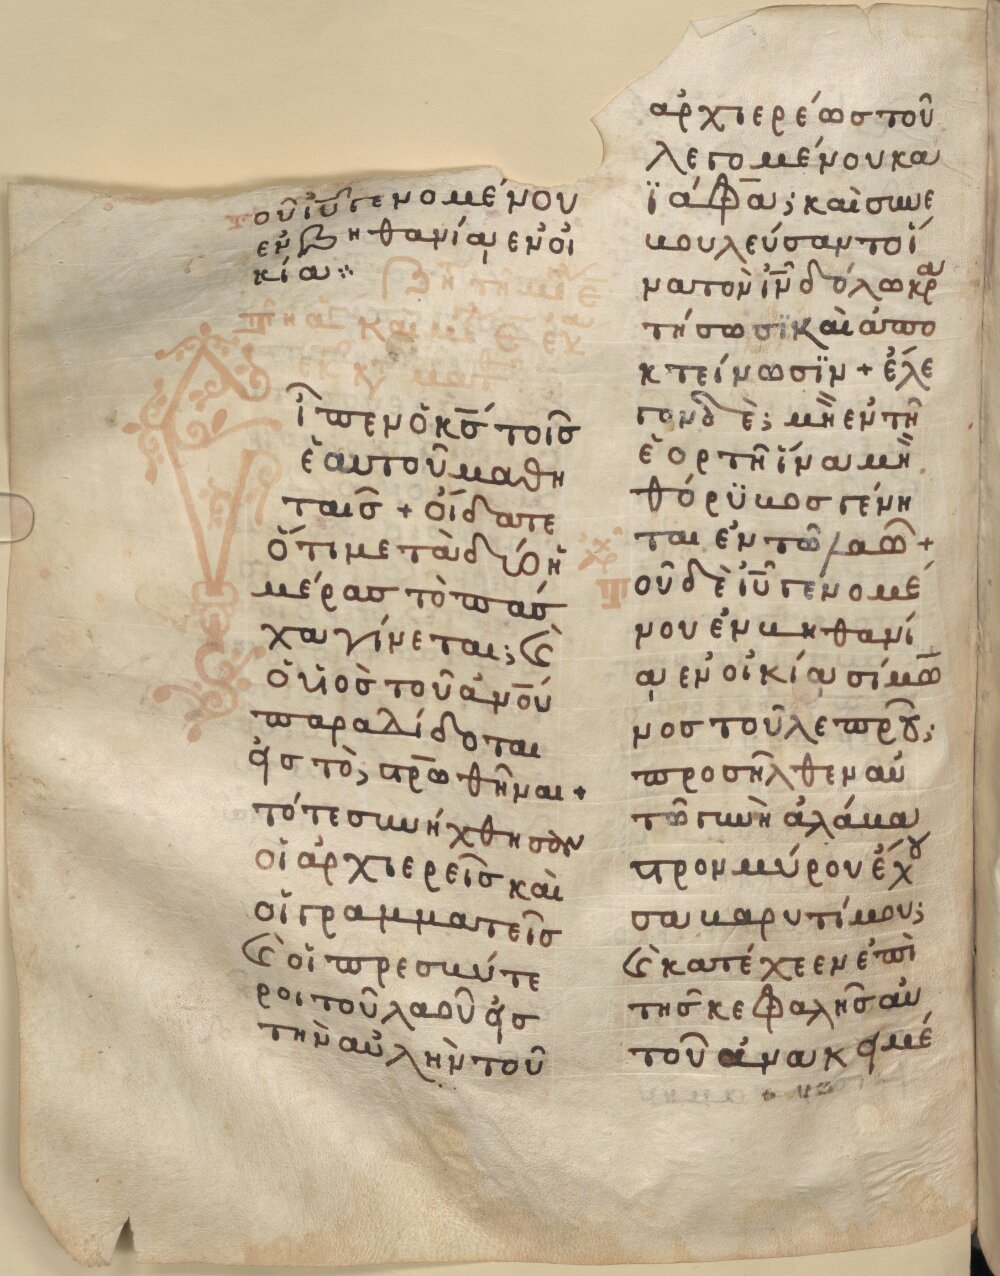 οῦ ἰῦ γενομένου
ἐν βηθανία ἐν οἰ
κία
εἶπεν ὁ κς τοῖς
ἑαυτοῦ μαθη
ταῖς + οἴδατε
ὅτι μετὰ δύο ἡ
μέρας τὸ πάσ
χα γίνεται; καὶ
ὁ υἱὸς τοῦ ἀνού
παραδίδοται
εἰς τὸ; στρωθῆναι +
τότε συνήχθησαν
οἱ ἀρχιερεῖς καὶ
οἱ γραμματεῖς
καὶ οἱ πρεσβύτε
ροι τοῦ λαοῦ εἰς
τὴν αὐλὴν τοῦ
ἀρχιερέως τοῦ
λεγομένου κα
ϊάφα; καὶ συνε
βουλεύσαντο ἵ
να τὸν ἰν δόλω κρα
τήσωσϊ καὶ ἀπο
κτείνωσϊν + ἔλε
γον δὲ; μὴ ἐν τῆ
ἑορτῆ ἵνα μὴ
θόρϋβος γένη
ται ἐν τῶ λαῶ +
οῦ δὲ ἰῦ γενομέ
νου ἐν βηθανί
α ἐν οἰκία σίμω
νος τοῦ λεπροῦ;
προσῆλθεν αὐ
τῶ γυνὴ ἀλάβα
στρον μύρου ἔχου
σα βαρυτίμου;
καὶ κατέχεεν ἐπὶ
τῆς κεφαλῆς αὐ
τοῦ ἀνακειμέ